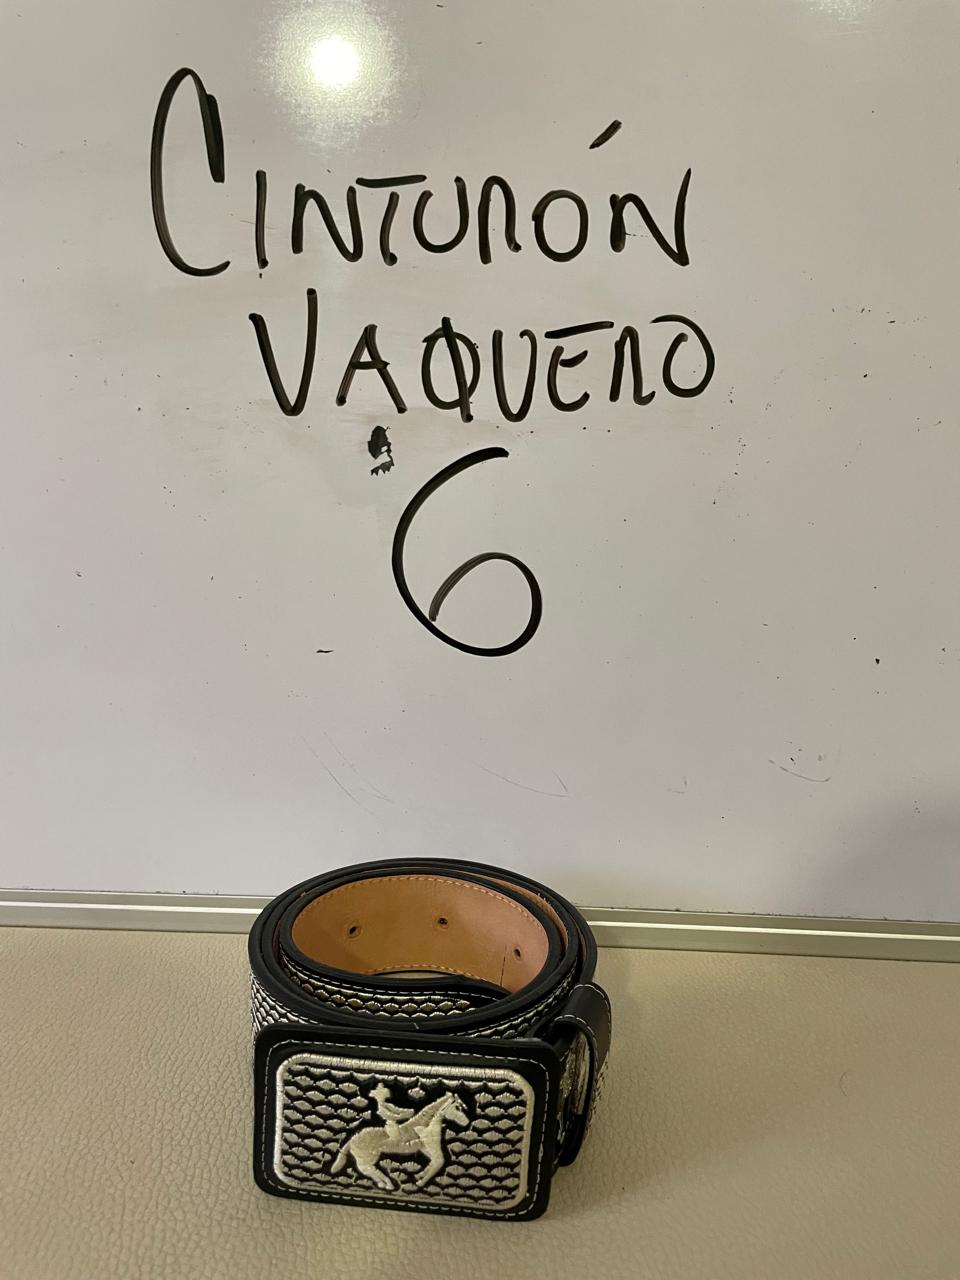 CINTURÓN
VAQUERO
6